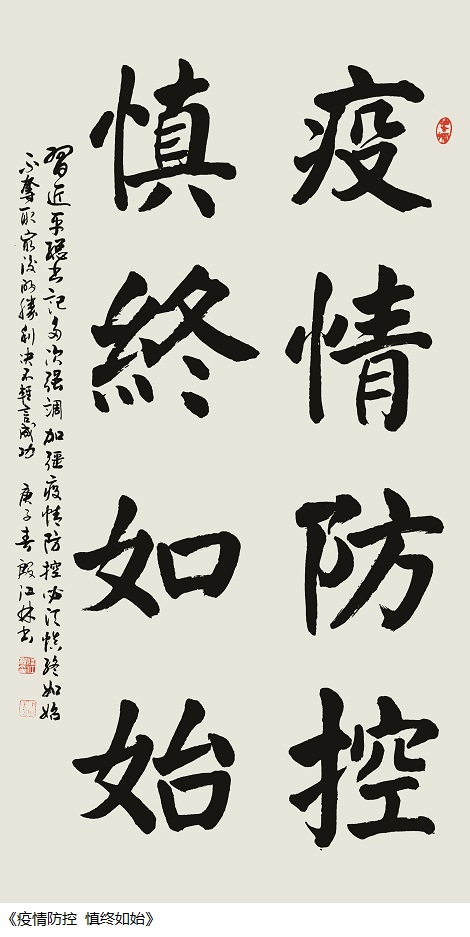 疫情防控
慎終如始
習近平總书記多次强調加强疫情防控必须慎终如始
不奪取最後的勝利决不輕言成功 庚子春殿江林书
《疫情防控 慎终如始》